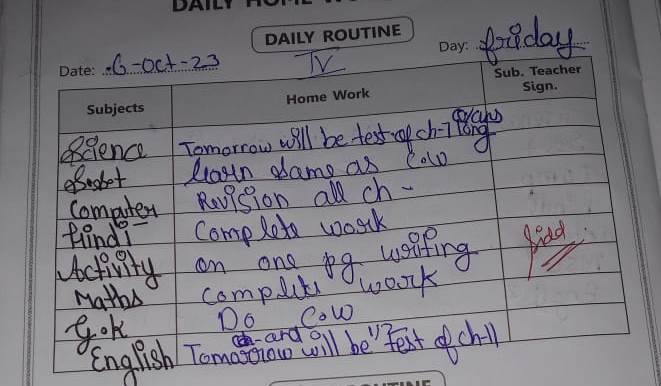 DAILY HOME WO
DAILY ROUTINE
Date: 6-Oct-23 IV Day: friday
Subjects Home Work Sub. Teacher Sign.
Science Tomorrow will be test of ch-7 long Q/ans
learn same as Cow
Computer Revision all ch-
Hindi Complete work
Activity on one pg writing
Maths Complete work
G.K Do Cow
English Tomorrow will be Test of ch-11